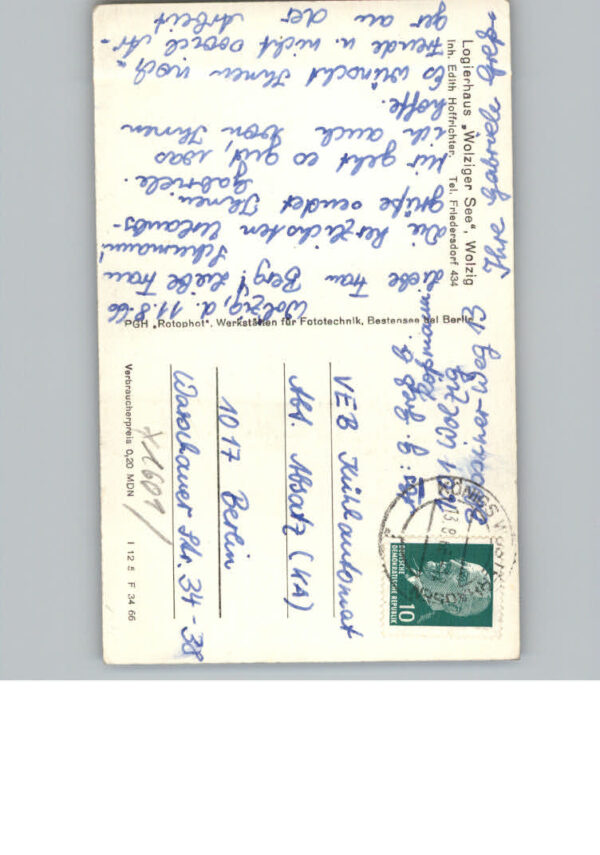 Logierhaus „Wolziger See“, Wolzig
Inh. Edith Hoffrichter, Tel. Friedersdorf 434
Wolzig, d. 11.8.66
Liebe Frau Berg! Liebe Frau
Schumann!
Die herzlichsten Urlaubs-
grüße sendet Ihnen
Gabriele.
Mir geht es gut, was
ich auch von Ihnen
hoffe.
Es wünscht Ihnen noch
Freude u. nicht soviel Är-
ger an der Arbeit
Ihre
PGH „Rotophot“, Werkstätten für Fototechnik, Bestensee bei Berlin
Wolzig
KÖNIGS WUSTERHAUSEN
DEUTSCHE
DEMOKRATISCHE REPUBLIK
10
VEB Kühlautomat
Abt. Absatz (KA)
1017 Berlin
Warschauer Str. 34-38
X1601/
Verbraucherpreis 0,20 MDN
I 12 5 F 34 66